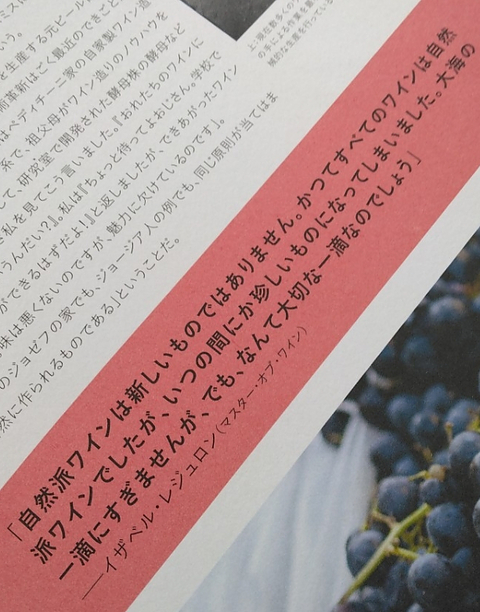 上:現在数多くの
の手による作業を重
統的な生産を行っている
ミスに
う。
を生産する元ビール
術革新はごく最近のできごと
はベディチーニ家の自家製ワイン造
系で、祖父母がワイン造りのノウハウを
して、研究室で開発された酵母株の酵母など
き私を見てこう言いました。『おれたちのワインに
うんだい?』。私は『ちょっと待ってよおじさん。学校で
ができるはずだよ!』と返しましたが、できあがったワイン
味は悪くないのですが、魅力に欠けているのです」。
のジョゼフの家でも、ジョージア人の例でも、同じ原則が当てはま
然に作られるものである」ということだ。
「自然派ワインは新しいものではありません。かつてすべてのワインは自然
派ワインでしたが、いつの間にか珍しいものになってしまいました。大海の
一滴にすぎませんが、でも、なんて大切な一滴なのでしょう」
――イザベル・レジュロン(マスター・オブ・ワイン)